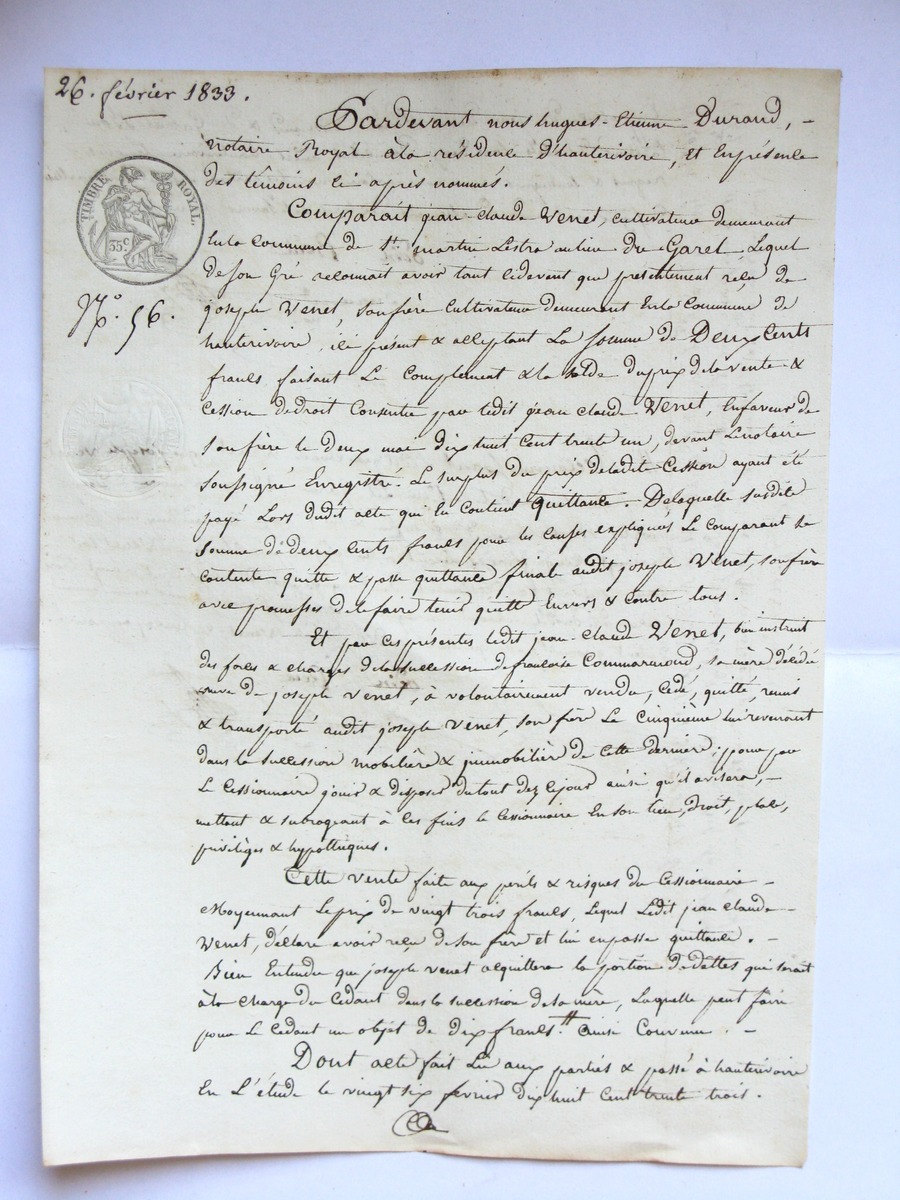 26. février 1833.
TIMBRE ROYAL.
35c
N.° 56.
Pardevant nous hugues-Etienne Durand, –
notaire Royal à la résidence d'hauterivoire, et En présence
des témoins ci après nommés.
Comparait jean-claude Venet, cultivateur demeurant
En la commune de St. martin Lestra au lieu du Garel Lequel
de son Gré reconnait avoir tant cidevent que présentement reçu de
joseph Venet, son frère cultivateur demeurant En la Commune de
hauterivoire, ici présent & acceptant La Somme de Deux Cents
francs faisant Le Complement & la solde du prix de la vente &
Cession de droit Consentie par ledit jean claude Venet, En faveur de
son frère le deux mai dix huit Cent trente un, devant Le notaire
soussigné Enregistré. Le surplus du prix de ladite Cession ayant été
payé Lors dudit acte qui En Contient Quittance. De laquelle susdite
somme de deux cents francs pour les causes expliquées Le Comparant se
contente quitte & passe quittance finale audit joseph Venet, son frère
avec promesses de le faire tenir quitte Envers & contre tous.
Et par ces présentes ledit jean-claude Venet, bien instruit
des forces & charges de la succession de françoise Commarmond, sa mère décédée
veuve de joseph Venet, à volontairement vendu, cédé, quitté, remis
& transporté audit joseph Venet, son frère Le Cinquième lui revenant
dans la succession mobilière & immobilière de Cette dernière; pour par
Le Cessionnaire jouir & disposer du tout dez cejour ainsi qu'il avisera, –
mettant & subrogeant à ces fins le cessionnaire En son lieu, droit, place,
privilèges & hypothèques.
Cette vente faite aux périls & risques du Cessionnaire –
Moyennant Le prix de vingt trois francs, Lequel Ledit jean claude –
Venet, déclare avoir reçu de son frère et lui en passe quittance. –
Bien Entendu que joseph venet acquittera la portion de dettes qui serait
à la charge du Cedant dans la succession de sa mère, Laquelle peut faire
pour Le Cedant un objet de dix francs. Ainsi Convenu. –
Dont acte fait Lu aux parties & passé à hauterivoire
En L'étude le vingt six fevrier dix huit Cent trente trois.